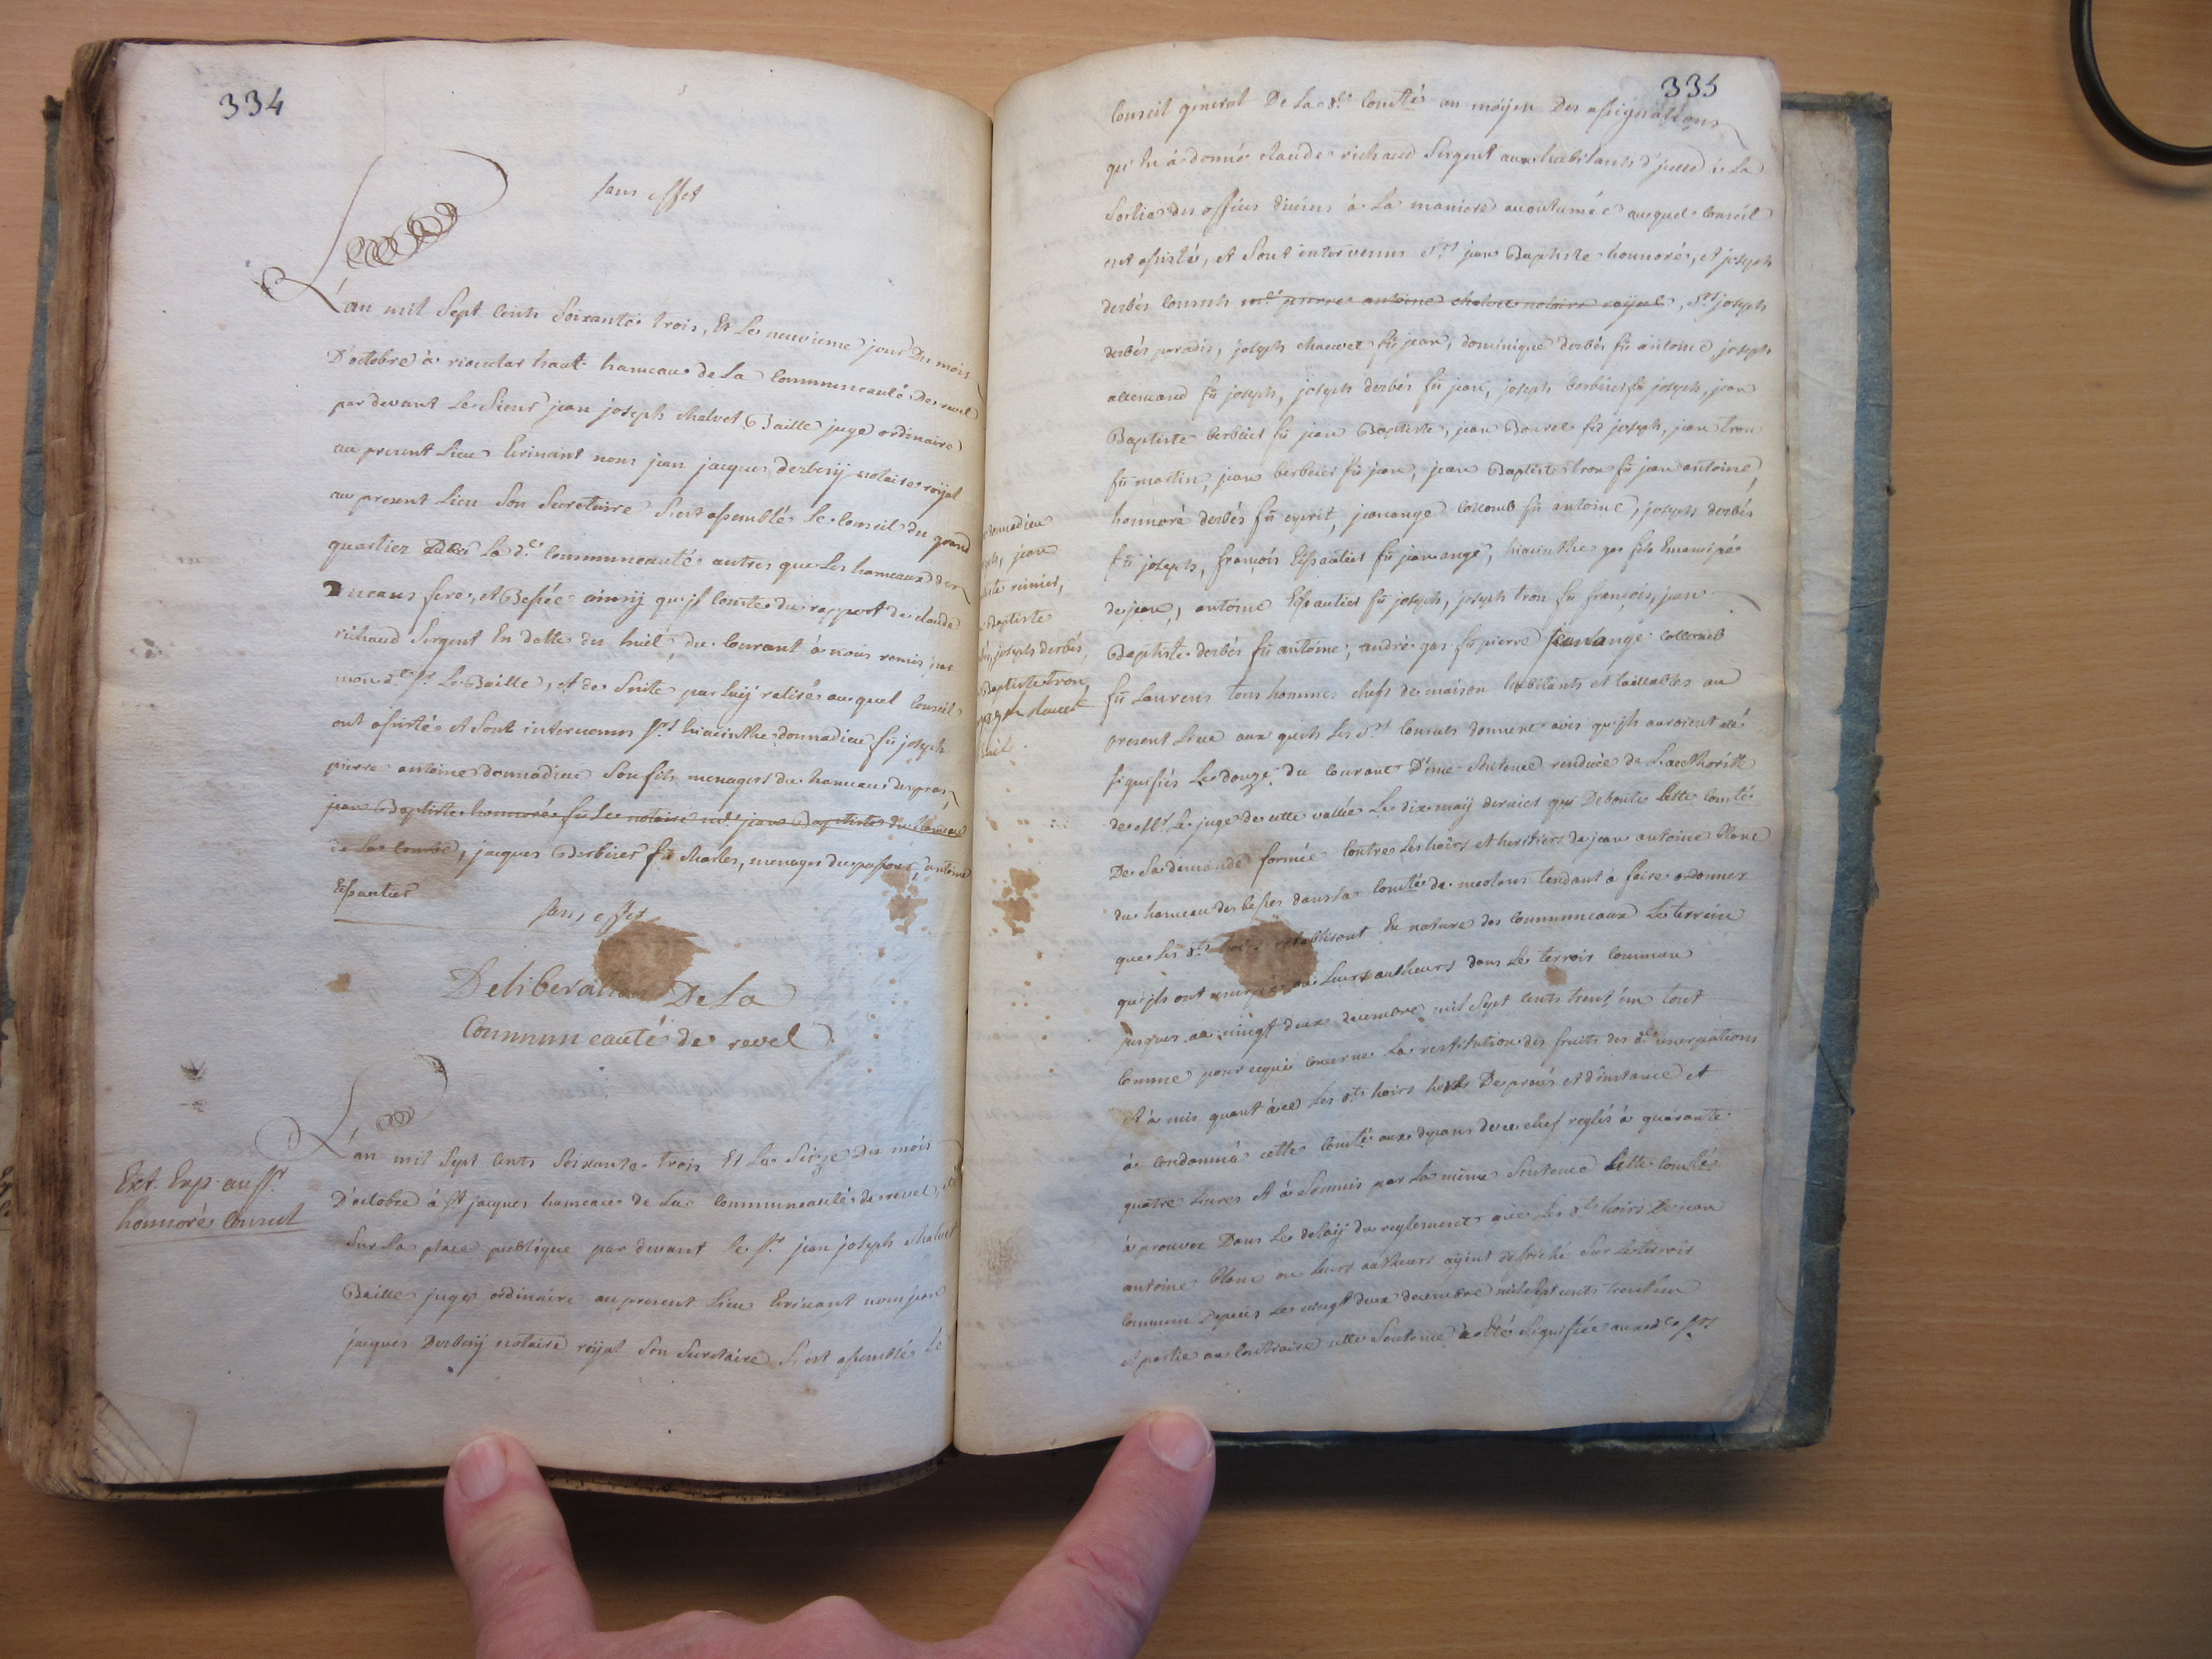 334
sans effet
L'an mil sept cents soixante trois, et le neuvieme jour du mois
D'octobre à rioudar haut hameau de la communeauté de revel
par devant le sieur jean joseph chalvet Baille juge ordinaire
au present lieu Ecrivant nous jean jacques derbesy notaire royal
au present lieu son secretaire s'est assemblé le conseil du grand
quartier de la d.e communeauté autres que les hameaux des
fere, et Bessée ainsy qu'il conste du rapport de claude
richaud sergent en datte du huit, du courant à nous remis par
mon d.t s.r le Baille, et de suite par luy retiré auquel conseil
ont assisté et sont intervenus s.rs hiacinthe donnadieu fû joseph
pierre antoine donnadieu son fils menagers du hameau des pras,
jean Baptiste honnoré fû le notaire m.e jean Baptiste du hameau
de la combe, jacques Berbeier fû charles, menager du passour, antoine
Eissautier
sans effet
Deliberation De La
Communeauté de revel
Ext. Exp. au s.r
honnoré consul
L'an mil sept cents soixante trois Et le seize du mois
D'octobre à s.t jacques hameau de la communeauté de revel, et
sur la place publique par devant le s.r jean joseph chalvet
Baille juge ordinaire au present lieu Ecrivant nous jean
jacques Derbesy notaire royal son secretaire s'est assemblé le
335
Conseil general De la d.e com.té au moyen Des assignations
qu'En à donné claude richaud sergent aux habitants d'icelle à la
sortie des offices divins à la maniere accoutumée auquel conseil
ont assisté, et sont intervenus s.rs jean Baptiste honnoré, et joseph
derbés consuls m.e pierre antoine chalvet notaire royal, s.rs joseph
derbés paradis, joseph chauvet fû jean, dominique derbés fû antoine, joseph
allemand fû joseph, joseph derbés fû jean, joseph berbeier fû joseph, jean
Baptiste berbeier fû jean Baptiste, jean Borrel fû joseph, jean tron
fû martin, jean berbeier fû jean, jean Baptiste tron fû jean antoine,
honnoré derbés fû esprit, jean ange collomb fû antoine, joseph derbés
fû joseph, françois Eissautier fû jean ange, hiacinthe gas fils Emancipé
de jean, antoine Eissautier fû joseph, joseph tron fû françois, jean
Baptiste derbés fû antoine, andré gas fû pierre jean ange collomb
fû Laurens tous hommes chefs de maison habitants et taillables au
present lieu aux quels les s.rs consuls donnent avis qu'ils auroient été
signifiés le douze du courant D'une sentence rendüe de L'authorité
de M.r le juge de cette vallée le dix may dernier qui Deboute cette com.té
De sa demande formée contre les hoirs et heritiers de jean antoine Blanc
du hameau des besses dans la com.té de meolans tendant à faire ordonner
que les d.ts hoirs etablisont En nature des communeaux le terrein
qu'ils ont usurpé ou leurs autheurs dans le terroir commun
jusques au vingt deux decembre mil sept cents trent'un tout
comme pour ce qui concerne la restitution des fruits des d.es usurpations
et à mis quant à ce les d.ts hoirs hors De procés et d'instance et
à condamné cette com.té aux depans de ce chef reglés à quarante
quatre livres et à soumis par la même sentence cette com.té
à prouver Dans le delay du reglement que les d.ts hoirs De jean
antoine Blanc ou leurs autheurs ayent defriché sur le terroir
commun Depuis le vingt deux decembre mil sept cents trent'un
et partie au contraire cette sentence à été signifiée aux d.ts s.rs
donnadieu
jean
Baptiste
joseph derbés,
Baptiste tron,